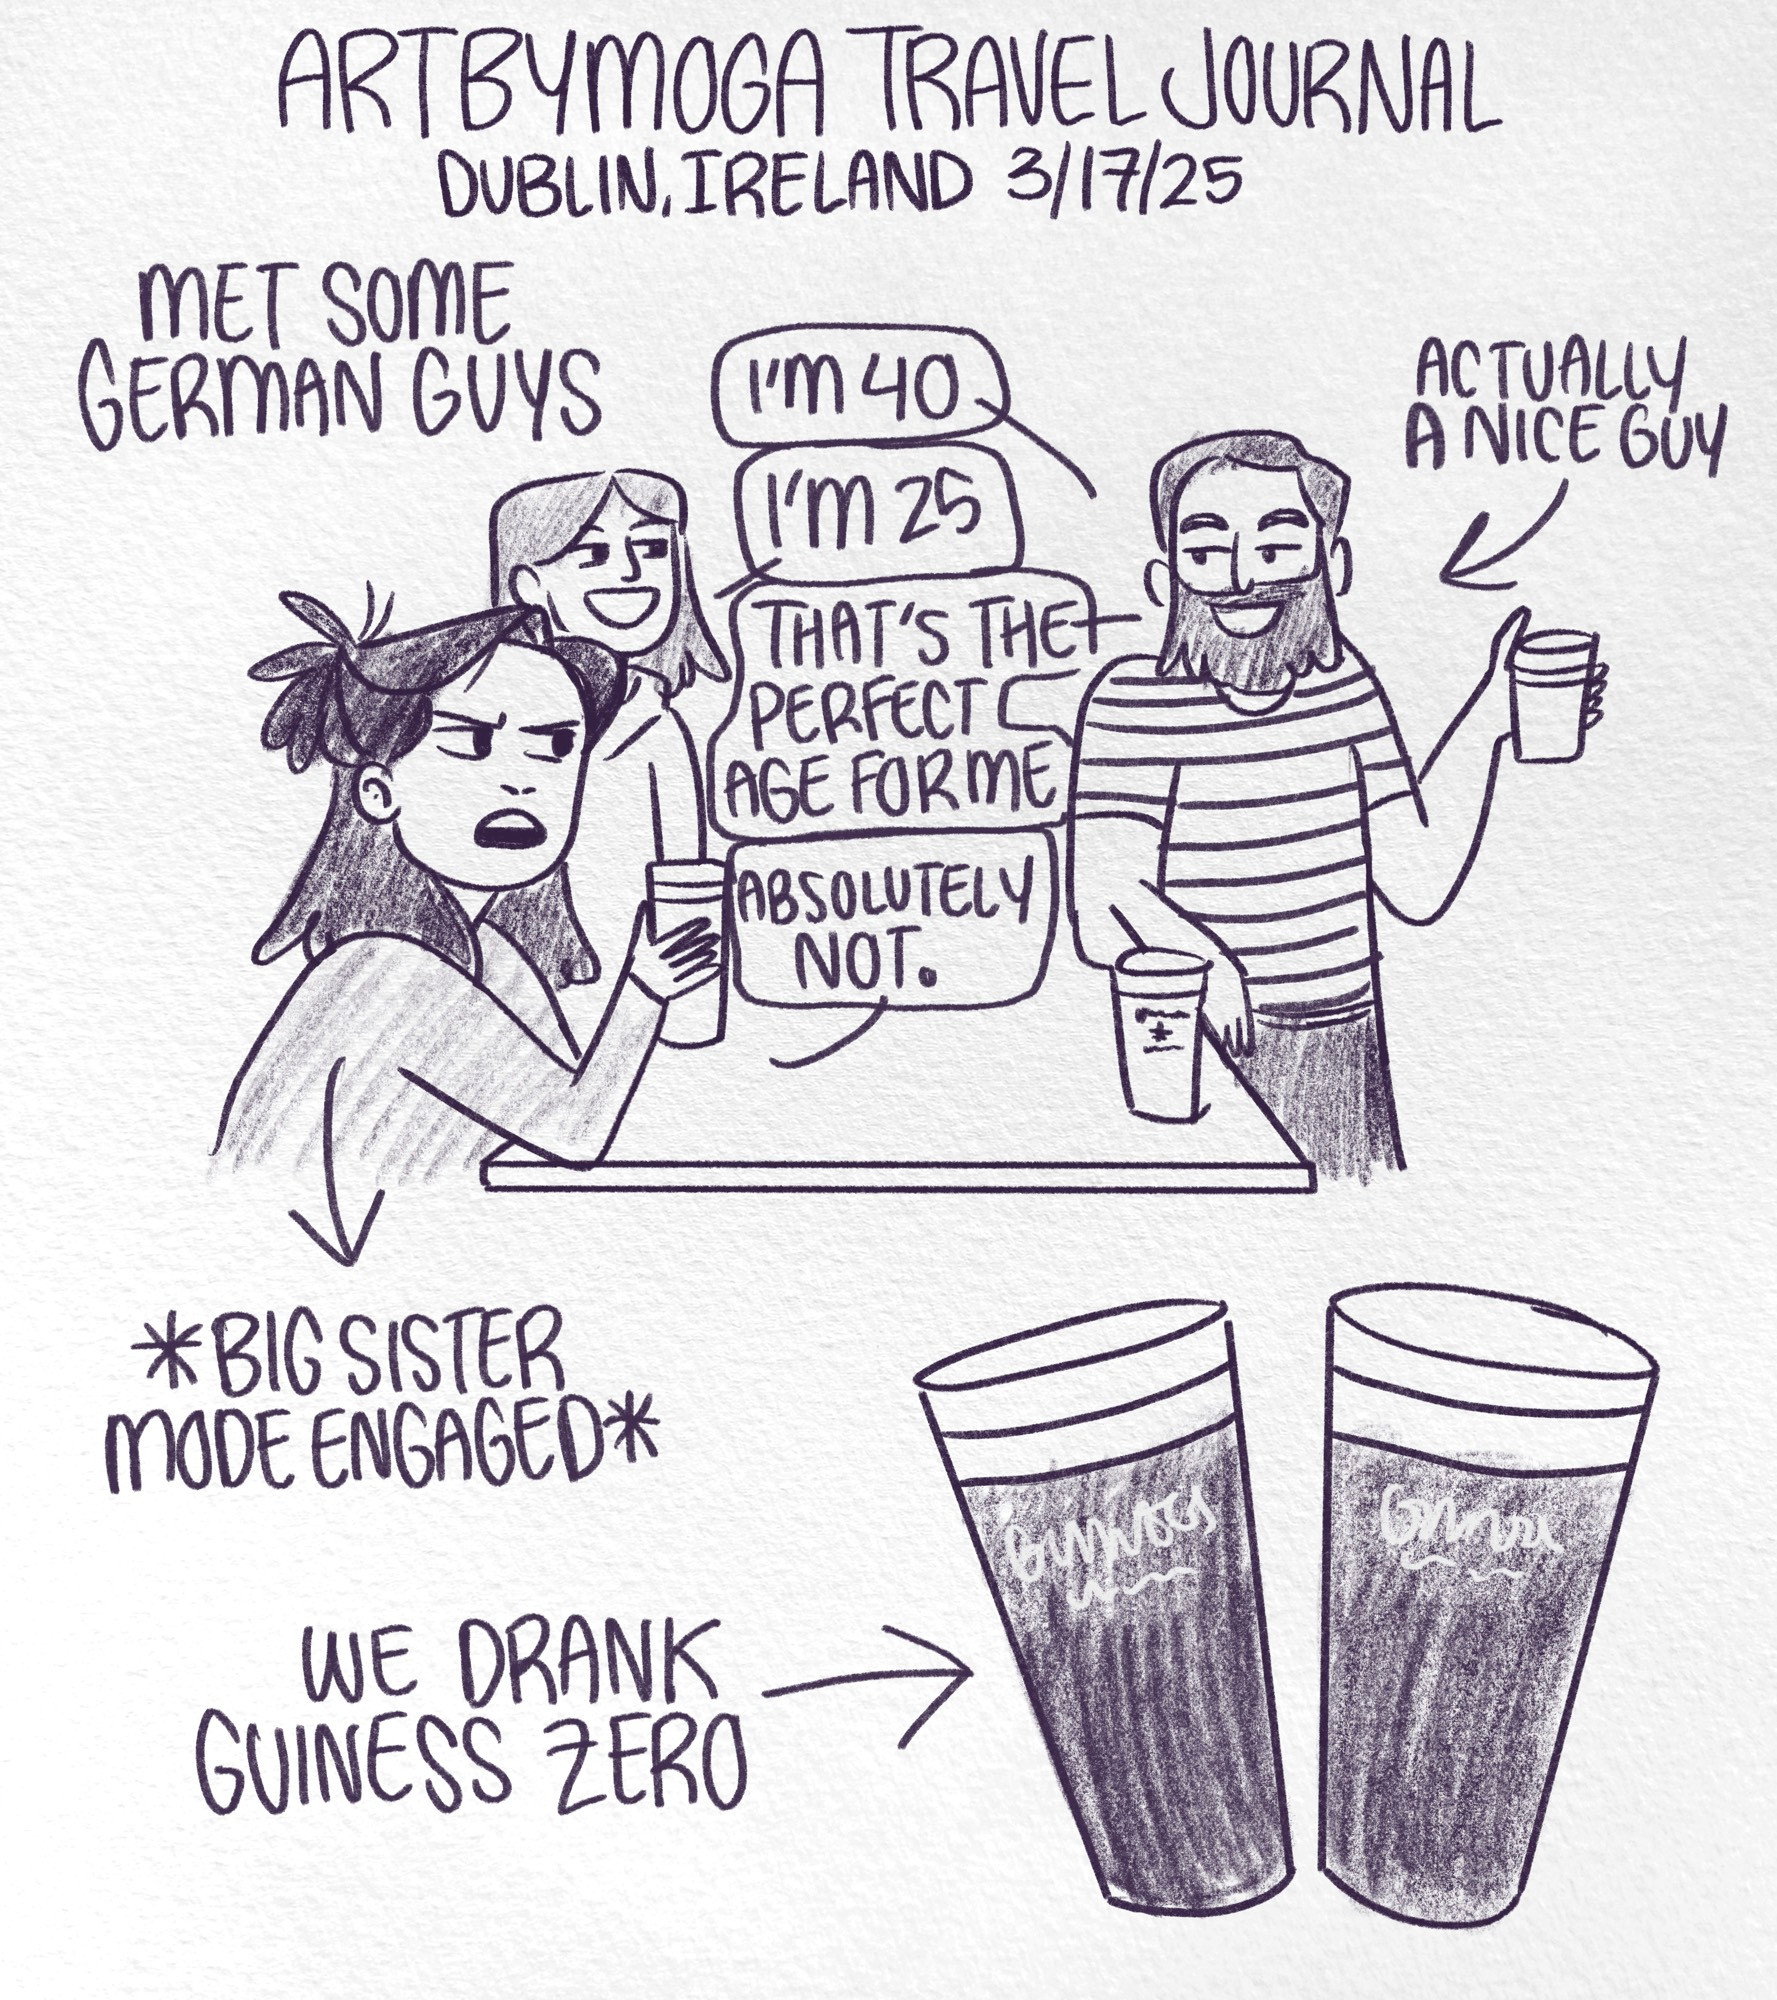 ARTBYMOGA TRAVEL JOURNAL
DUBLIN, IRELAND 3/17/25
MET SOME
GERMAN GUYS
I'M 40
I'M 25
THAT'S THE
PERFECT
AGE FOR ME
ABSOLUTELY
NOT.
ACTUALLY
A NICE GUY
*BIG SISTER
MODE ENGAGED*
WE DRANK
GUINESS ZERO